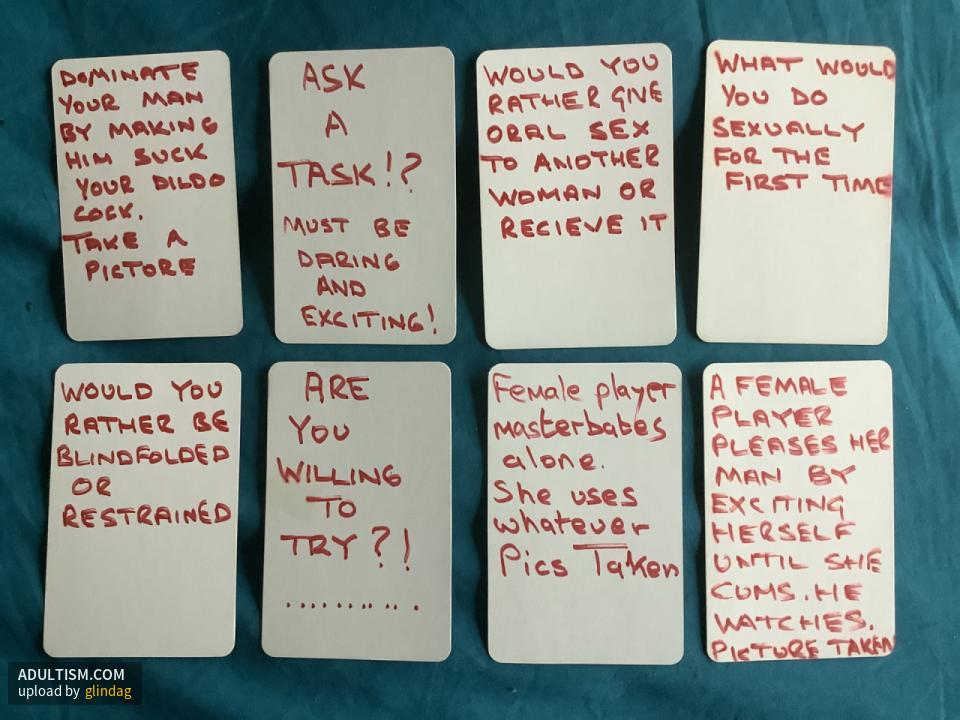 DOMINATE
YOUR MAN
BY MAKING
HIM SUCK
YOUR DILDO
COCK.
TAKE A
PICTURE
ASK
A
TASK!?
MUST BE
DARING
AND
EXCITING!
WOULD YOU
RATHER GIVE
ORAL SEX
TO ANOTHER
WOMAN OR
RECIEVE IT
WHAT WOULD
YOU DO
SEXUALLY
FOR THE
FIRST TIME
WOULD YOU
RATHER BE
BLINDFOLDED
OR
RESTRAINED
ARE
YOU
WILLING
TO
TRY?!
..........
Female player
masterbates
alone.
She uses
whatever
Pics Taken
A FEMALE
PLAYER
PLEASES HER
MAN BY
EXCITING
HERSELF
UNTIL SHE
CUMS. HE
WATCHES.
PICTURE TAKEN
ADULTISM.COM
upload by glindag